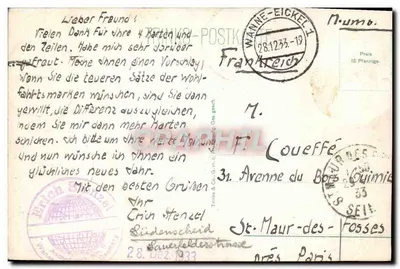 Lieber Freund!
Vielen Dank für ihre 4 Karten und
den Zeilen. Habe mich sehr darüber
gefreut. Mache ihnen einen Vorschlag,
Wenn Sie die teueren Sätze der Wohl-
fahrtsmarken wünschen, sind Sie dann
gewillt, die Differenz auszugleichen,
indem Sie mir dann mehr Karten
schicken. Ich bitte um Ihre
und nun wünsche ich ihnen ein
glückliches neues Jahr.
Mit den besten Grüßen
Ihr
Erich Henzel
Lüdenscheid
Sauerfelderstrasse
28. DEZ. 1933
WANNE-EICKEL 1
28.12.33.-19
Frankreich
Preis
15 Pfennige
M.
F. Coueffé
31. Avenue du Bois
St-Maur-des-Fosses
près Paris
33
SEINE